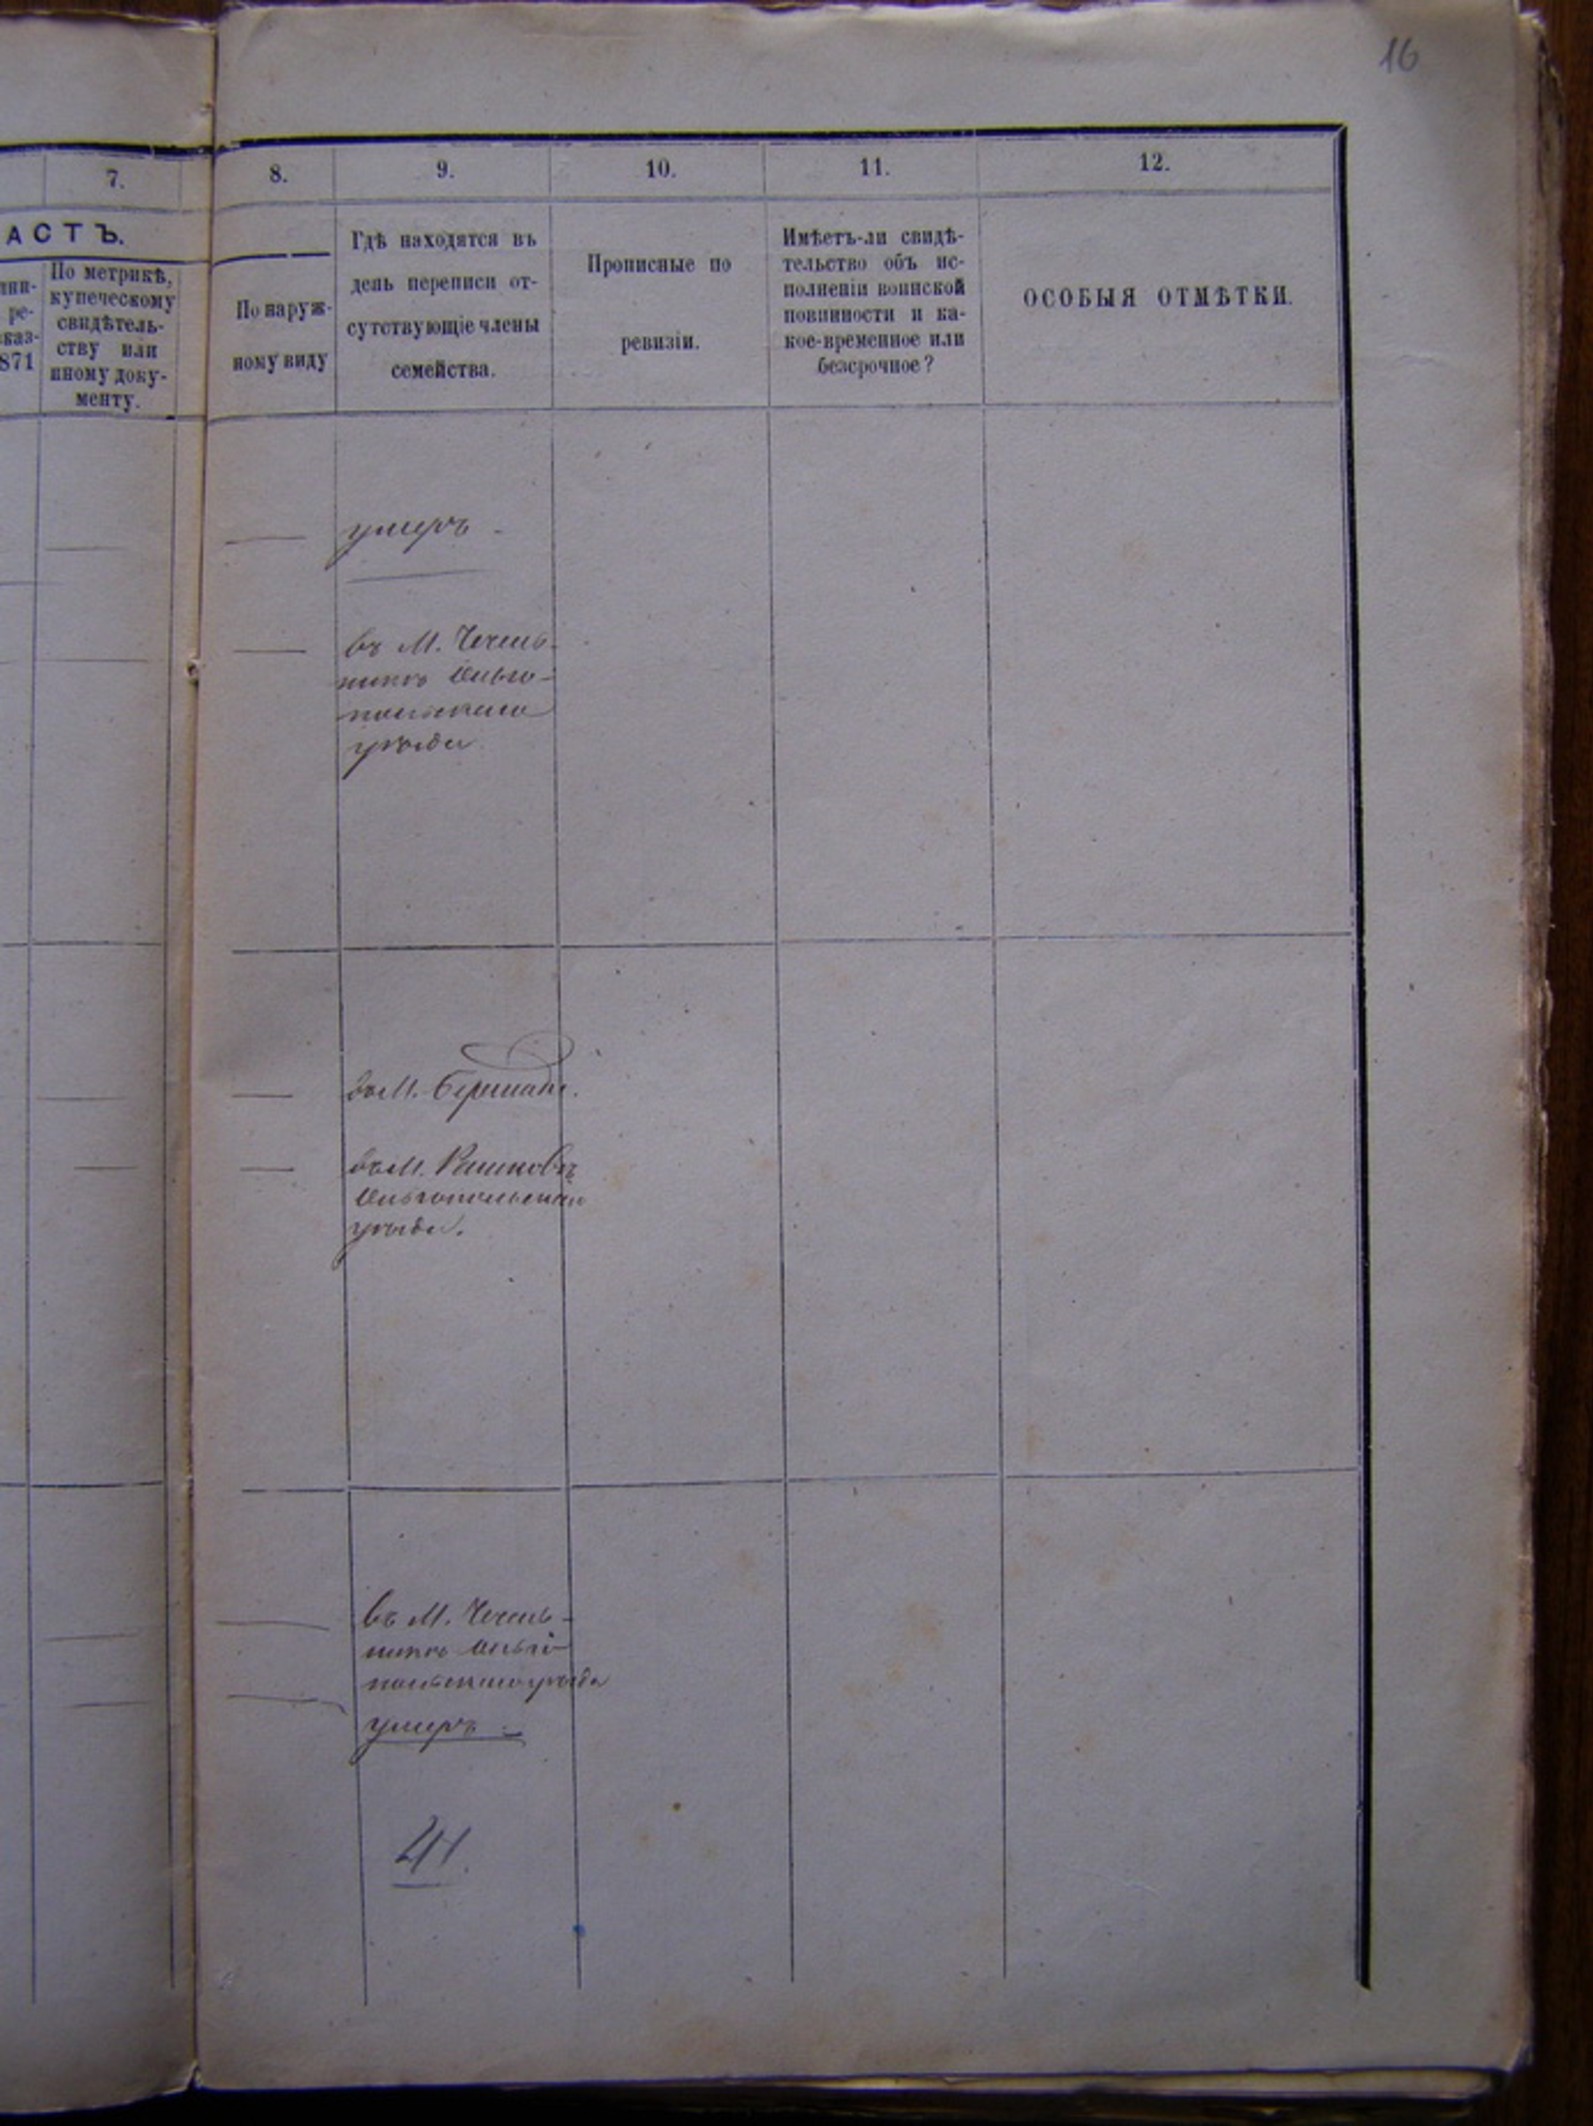 16
7.
8.
9.
10.
11.
12.
АСТЪ.
По метрикѣ,
купеческому
свидѣтель-
ству или
иному доку-
менту.
ре-
каз-
871
По наруж-
ному виду
Гдѣ находятся въ
день переписи от-
сутствующіе члены
семейства.
Прописные по
ревизіи.
Имѣетъ-ли свидѣ-
тельство объ ис-
полненіи воинской
повинности и ка-
кое-временное или
безсрочное?
ОСОБЫЯ ОТМѢТКИ.
умеръ -
въ М. Чечель-
никѣ Ольго-
польскаго
уѣзда
въ М. Бершади.
въ М. Рашковѣ
Ольгопольскаго
уѣзда.
въ М. Чечель-
никѣ Ольго-
польскаго уѣзда
умеръ -
41.